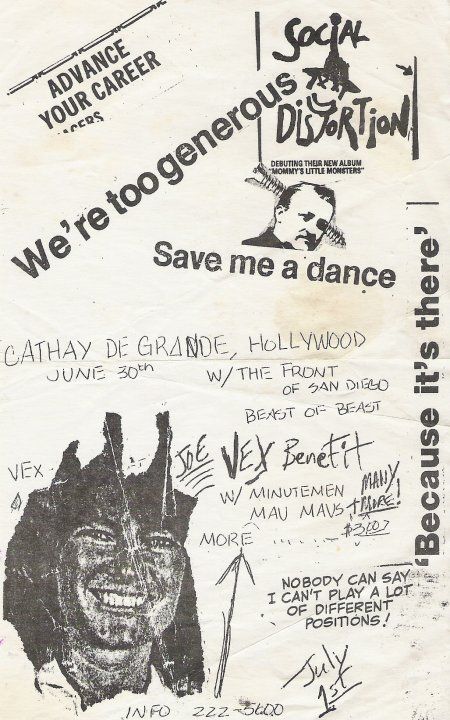 ADVANCE
YOUR CAREER
We're too generous
SOCIAL
DISTORTION
DEBUTING THEIR NEW ALBUM
"MOMMY'S LITTLE MONSTERS"
Save me a dance
'Because it's there'
CATHAY DE GRANDE, HOLLYWOOD
JUNE 30th
W/ THE FRONT
OF SAN DIEGO
BEAST OF BEAST
VEX
JOE VEX Benefit
W/ MINUTEMEN
MAU MAUS
+ MANY
MORE!
MORE
NOBODY CAN SAY
I CAN'T PLAY A LOT
OF DIFFERENT
POSITIONS!
July
1st
INFO 222-5600